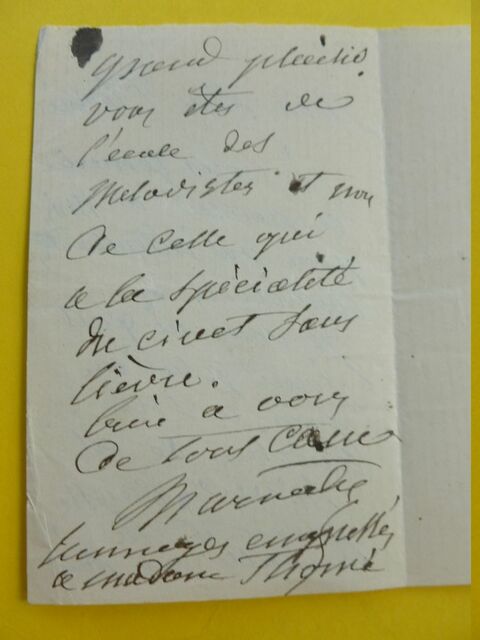 grand plaisir
vous êtes de
l'école des
Mélodistes et non
de celle qui
a la spécialité
du civet sans
lièvre.
bien à vous
de tout cœur
Marmontel
hommages empressés
a madame Thomé